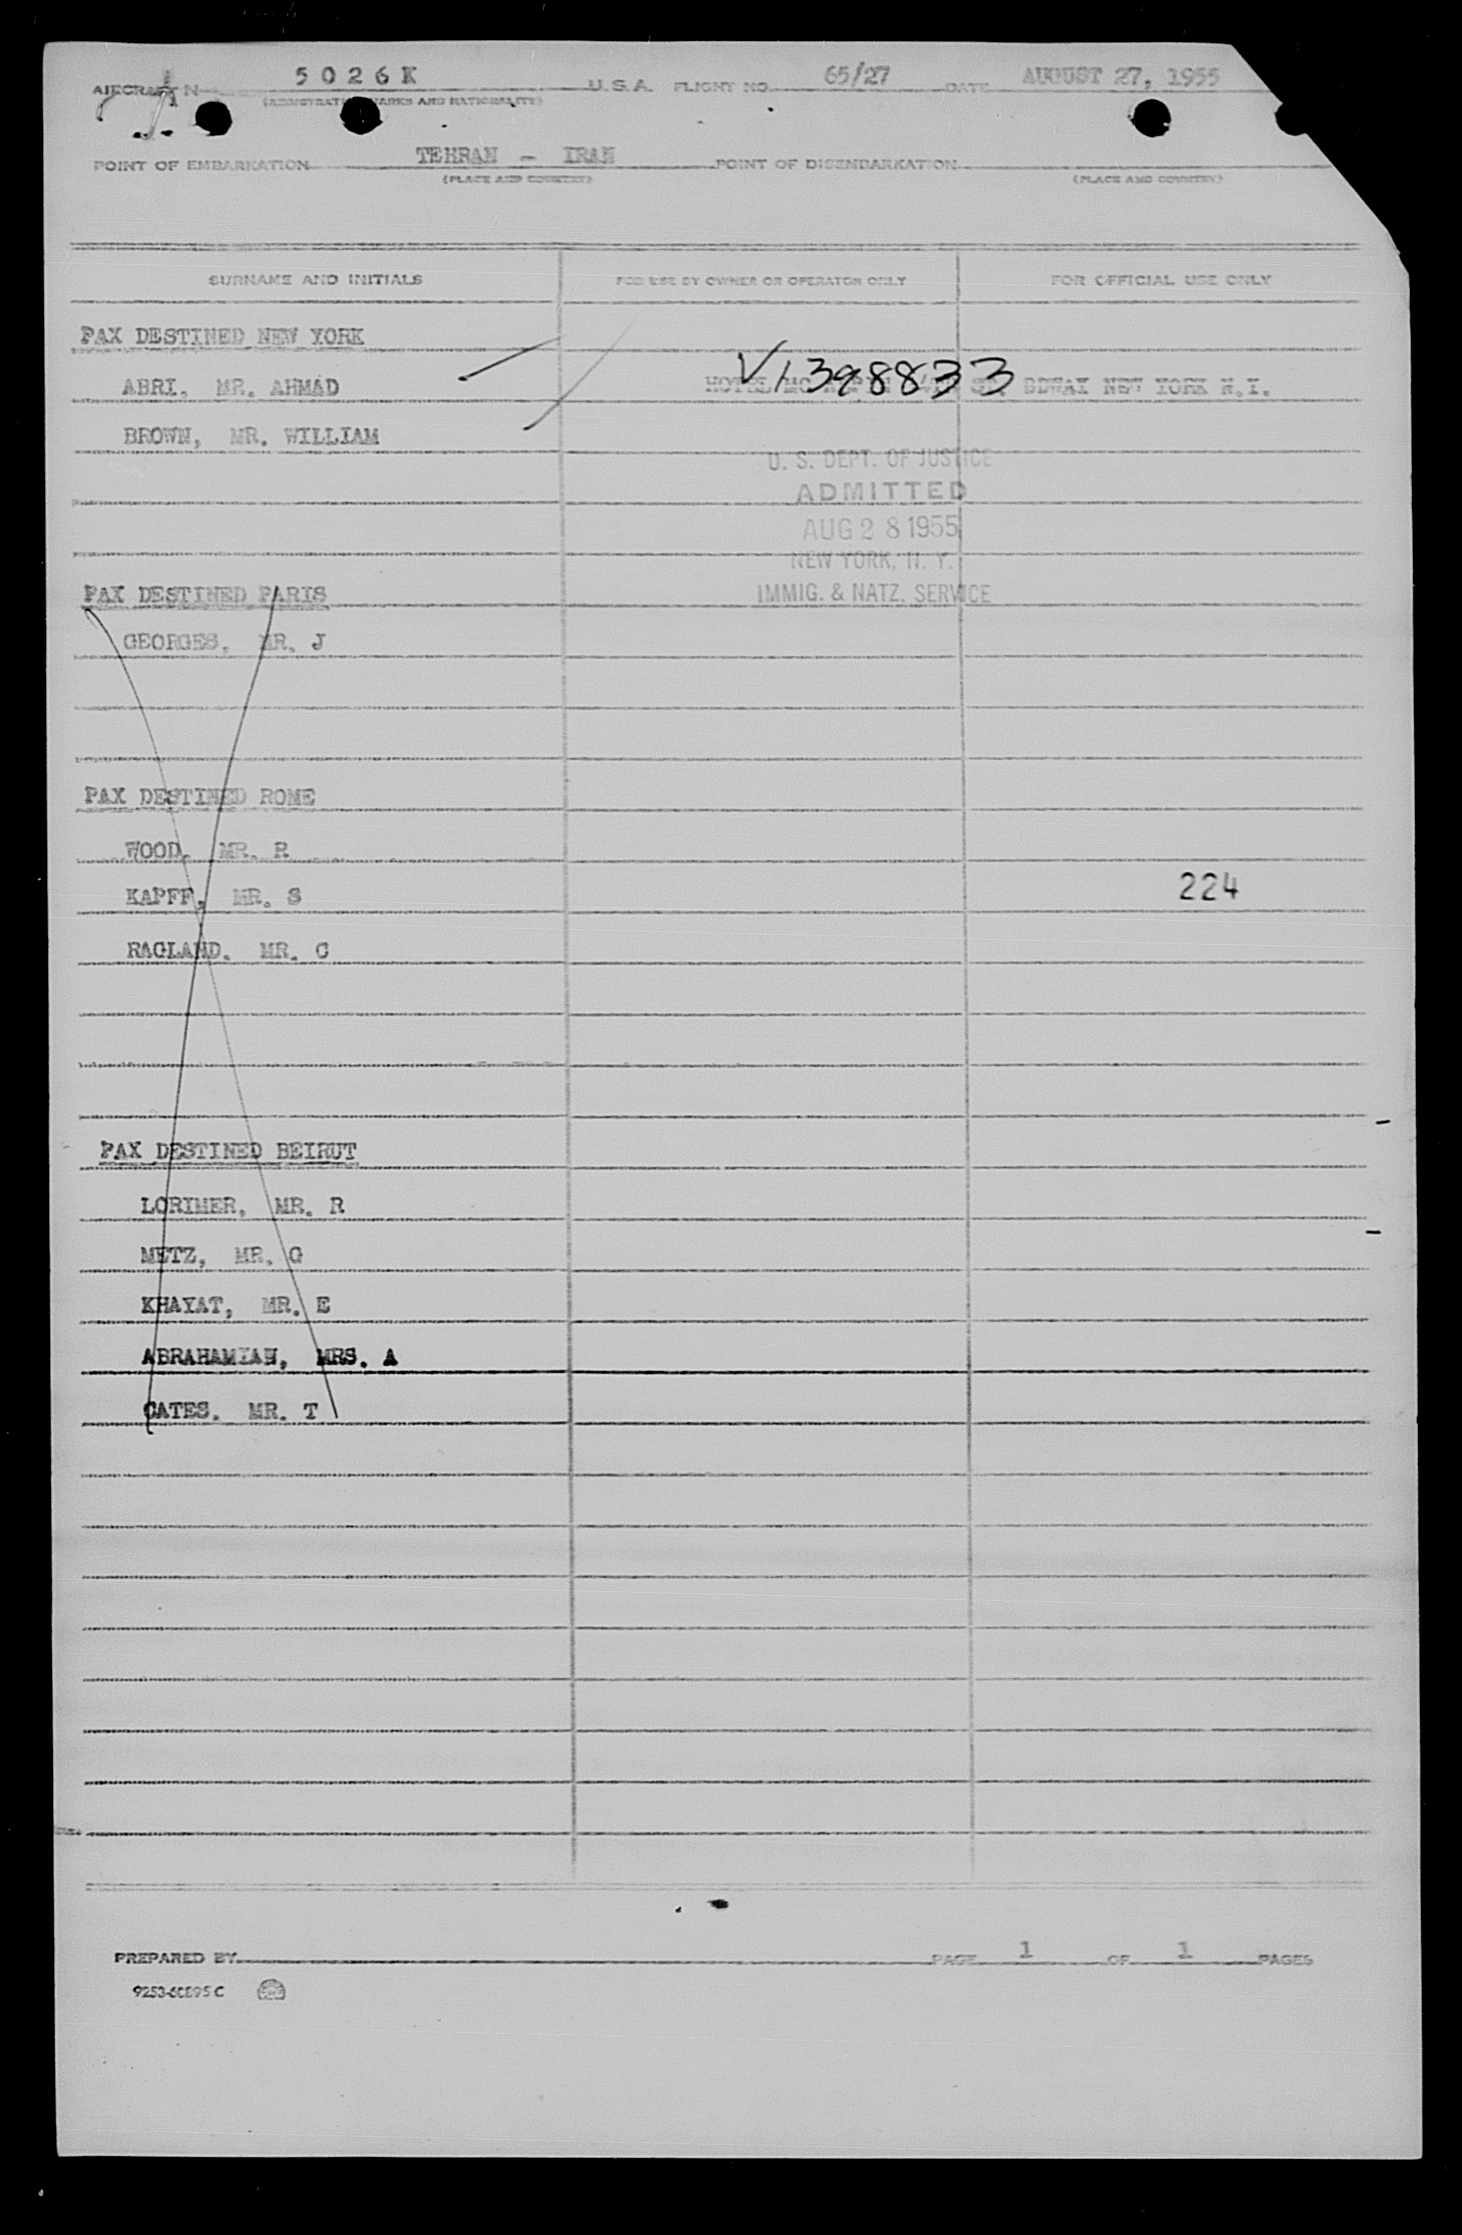 AIRCRAFT N 5026K U.S.A. FLIGHT NO. 65/27 DATE AUGUST 27, 1955
(REGISTRATION MARKS AND NATIONALITY)
POINT OF EMBARKATION TEHRAN - IRAN POINT OF DISEMBARKATION
(PLACE AND COUNTRY) (PLACE AND COUNTRY)
SURNAME AND INITIALS FOR USE BY OWNER OR OPERATOR ONLY FOR OFFICIAL USE ONLY
PAX DESTINED NEW YORK
V1398833
ABRI, MR. AHMAD HOTEL ST. BDWAY NEW YORK N.Y.
BROWN, MR. WILLIAM
U. S. DEPT. OF JUSTICE
ADMITTED
AUG 28 1955
NEW YORK, N. Y.
IMMIG. & NATZ. SERVICE
PAX DESTINED PARIS
GEORGES, MR. J
PAX DESTINED ROME
WOOD, MR. R
KAPFF, MR. S 224
RAGLAND. MR. C
PAX DESTINED BEIRUT
LORIMER, MR. R
METZ, MR. G
KHAYAT, MR. E
ABRAHAMIAN, MRS. A
CATES. MR. T
PREPARED BY PAGE 1 OF 1 PAGES